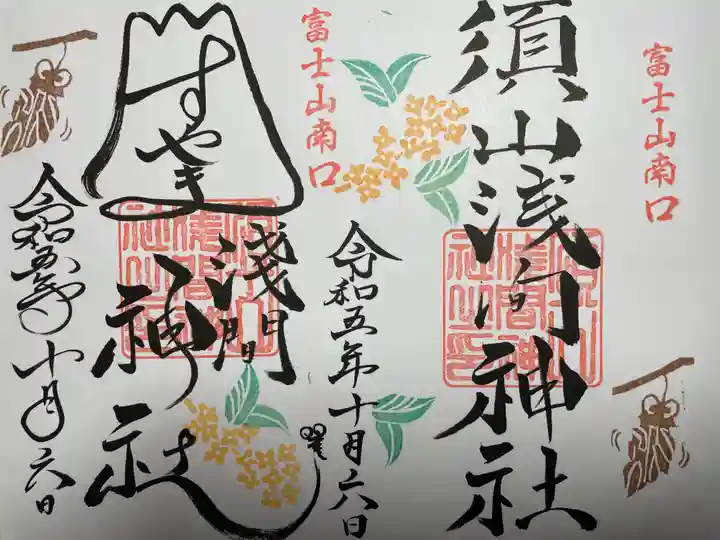 富士山南口
須山浅间神社
令和五年十月六日
富士山南口
すやま
淺間
神社
令和五年十月六日